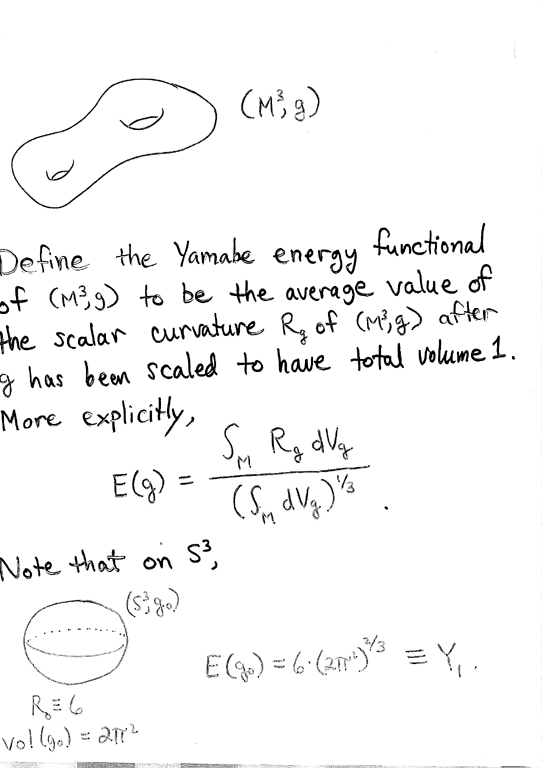 (M³, g)
Define the Yamabe energy functional
of (M³, g) to be the average value of
the scalar curvature R_g of (M³, g) after
g has been scaled to have total volume 1.
More explicitly,
E(g) = ∫_M R_g dV_g / (∫_M dV_g)^{1/3} .
Note that on S³,
(S³, g₀)
E(g₀) = 6·(2π²)^{2/3} ≡ Y₁ .
R₀ ≡ 6
vol(g₀) = 2π²